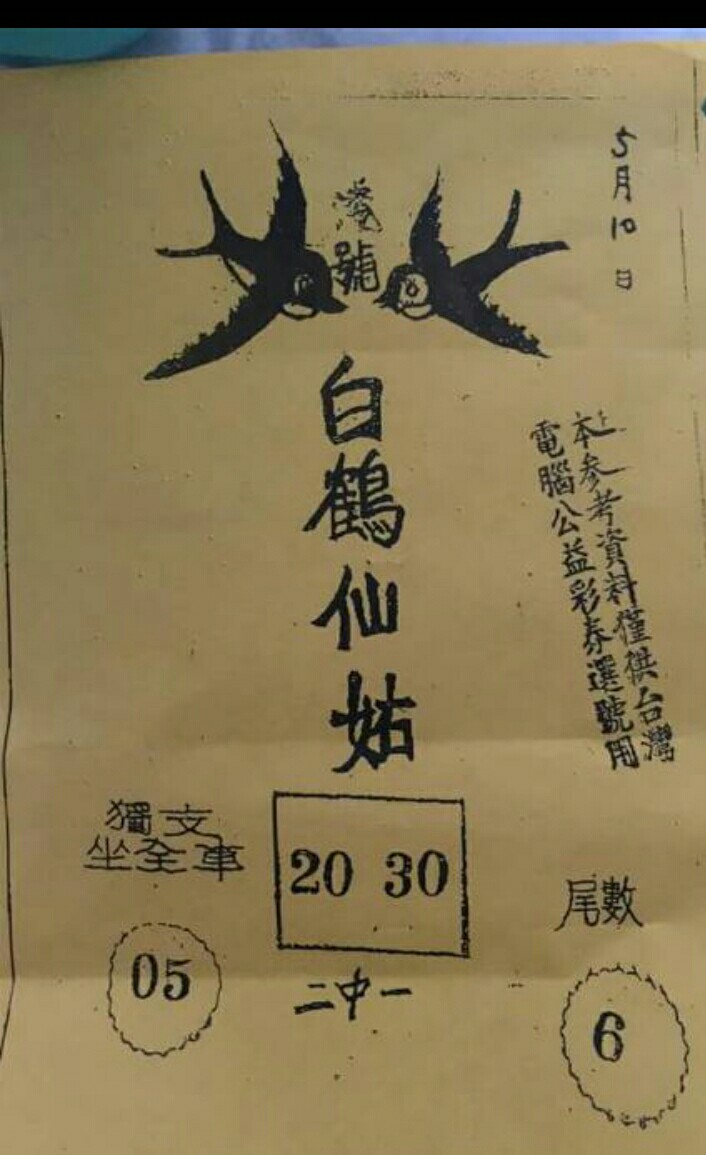 5月10日
號
白鶴仙姑
本參考資料僅供台灣
電腦公益彩券選號用
獨支
坐全車
05
20 30
二中一
尾數
6